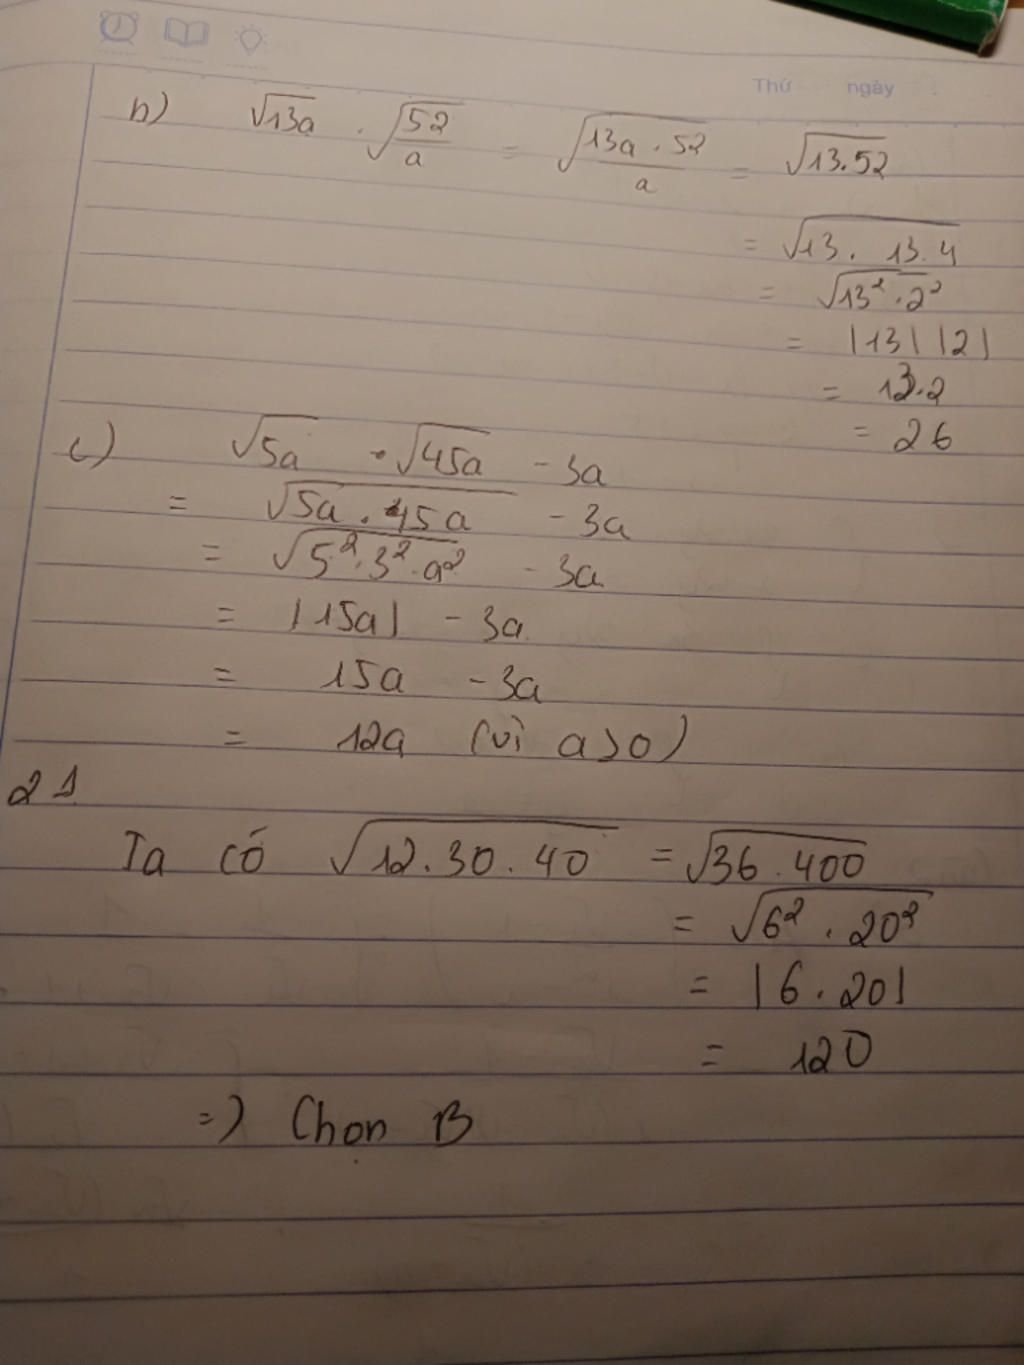 Thứ ngày
b) √13a . √(52/a) = √(13a . 52/a) = √13.52
= √13 . 13.4
= √13² . 2²
= |13| |2|
= 13.2
= 26
c) √5a . √45a - 3a
= √5a . 45a - 3a
= √5² . 3² . a² - 3a
= |15a| - 3a
= 15a - 3a
= 12a (vì a>0)
21
Ta có √12.30.40 = √36.400
= √6² . 20²
= |6.20|
= 120
=) Chọn B